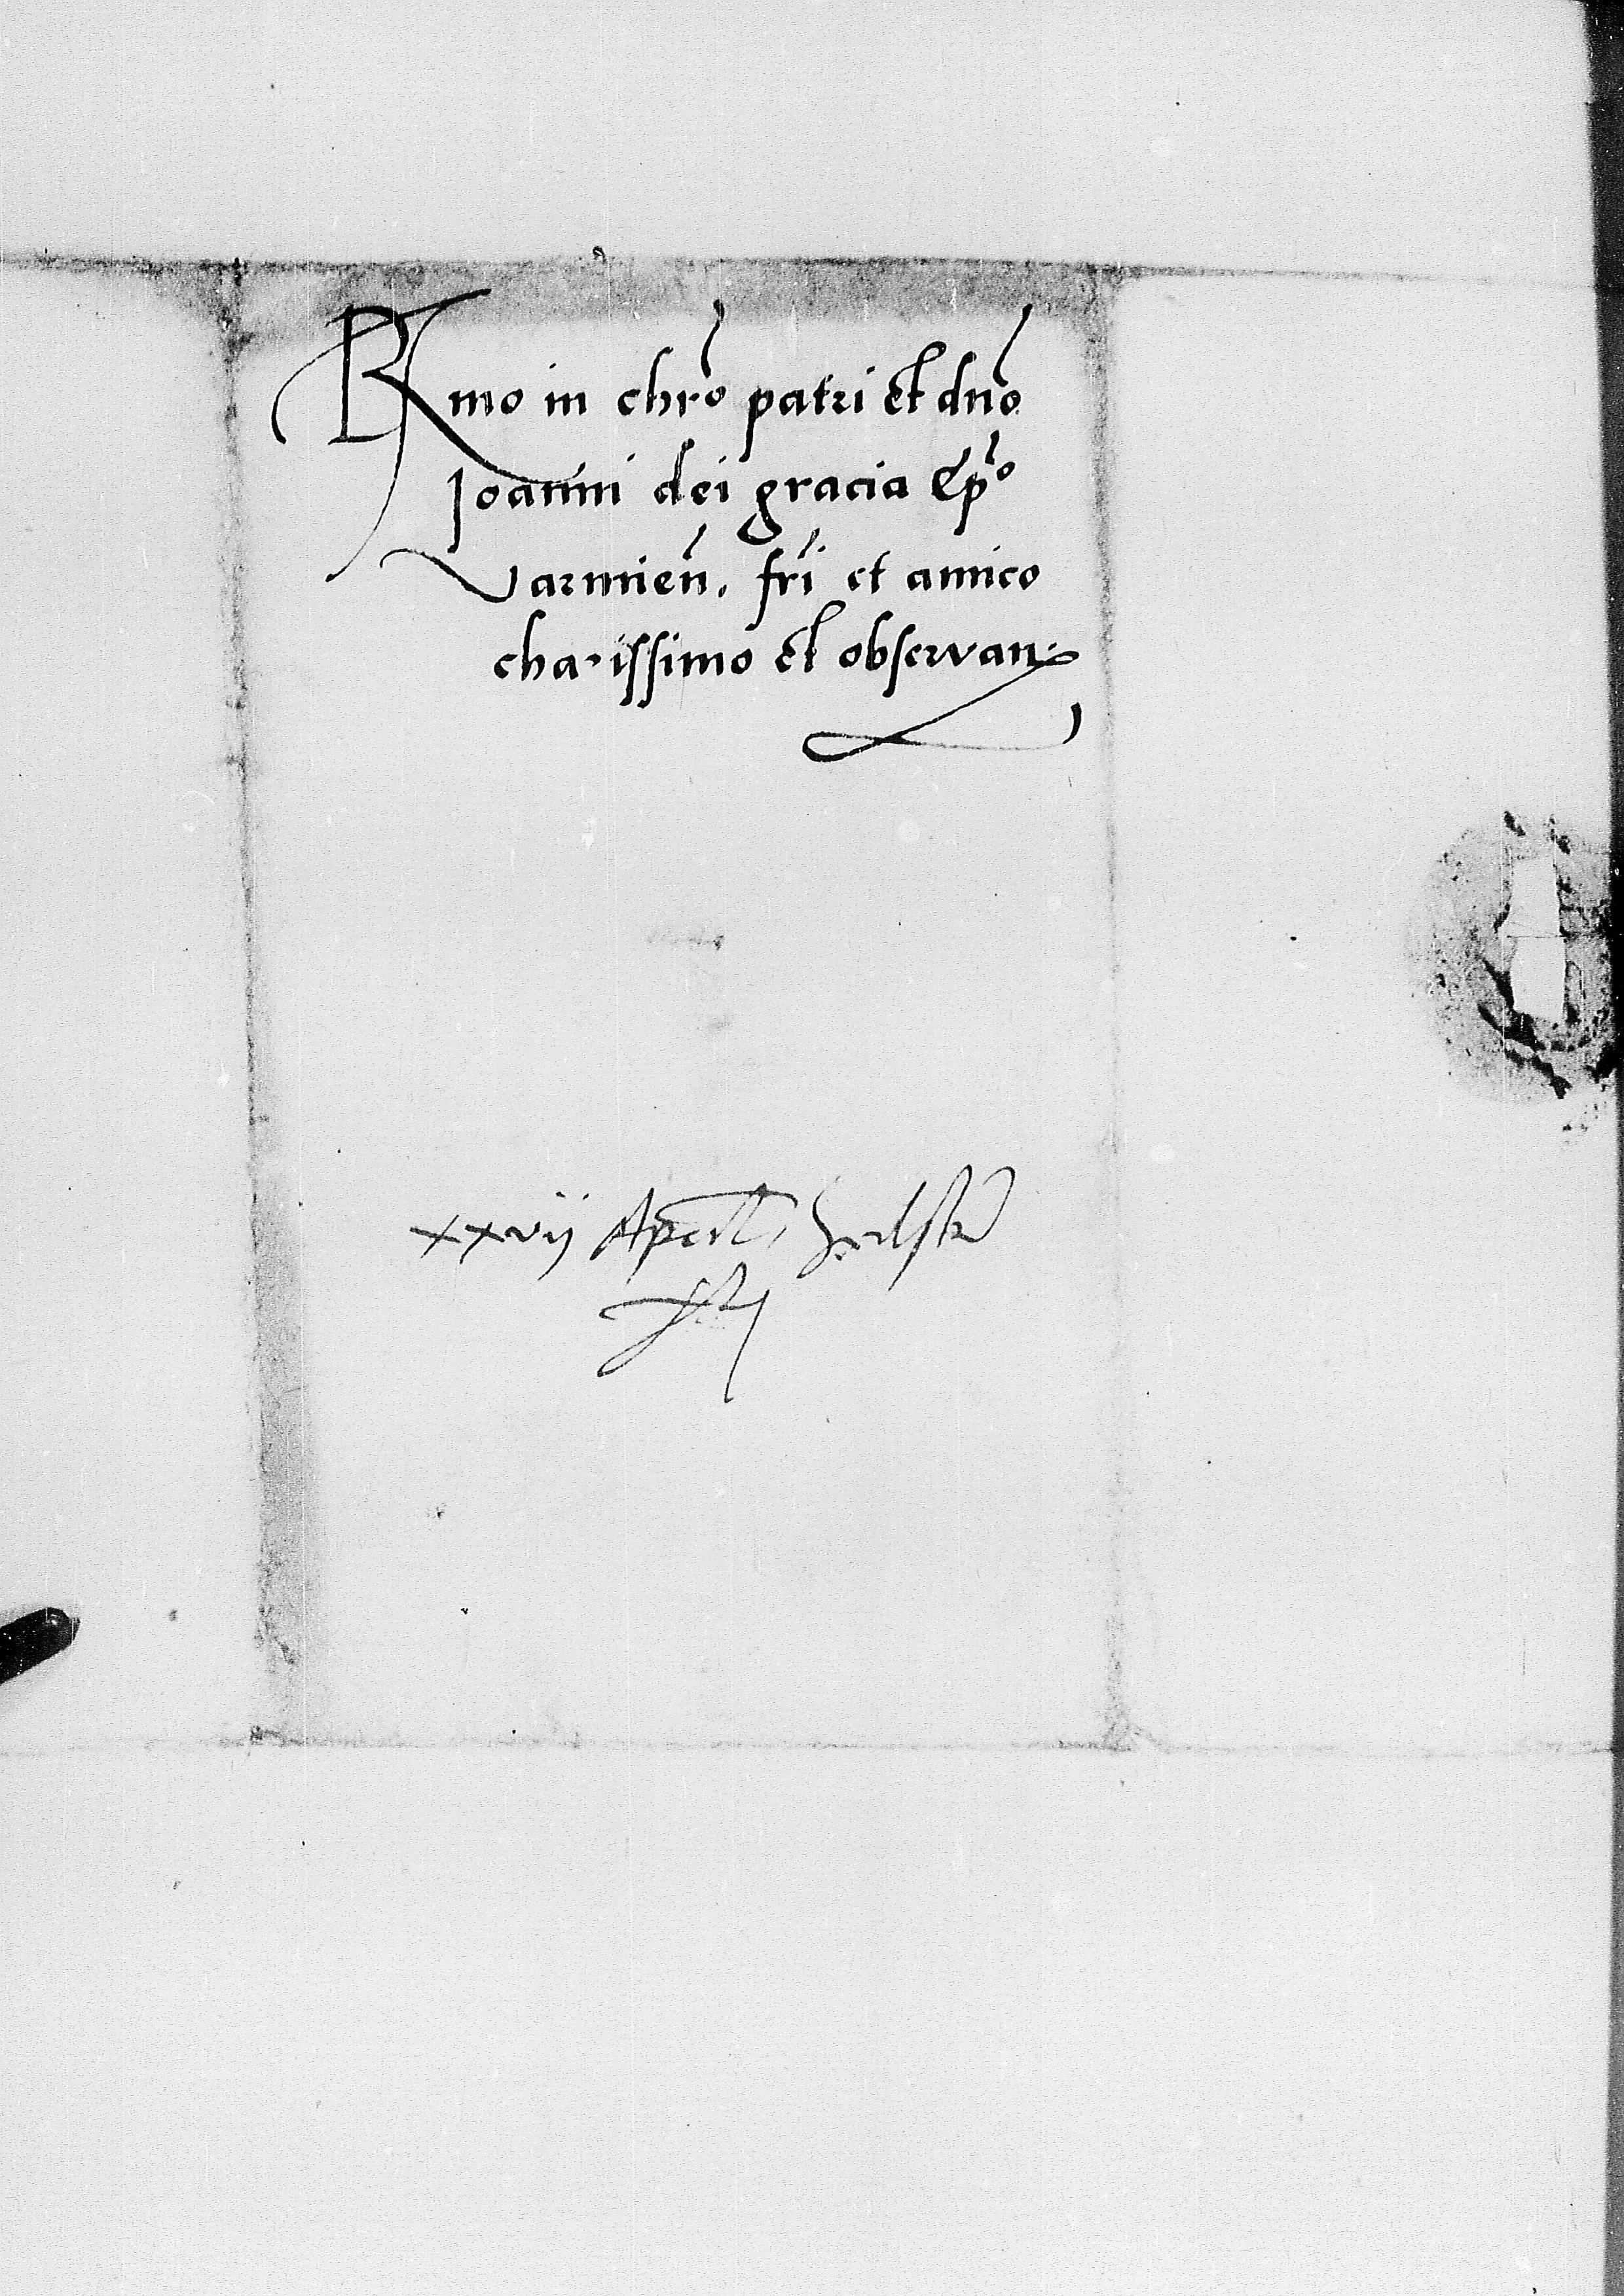 Rmo in chro patri et dno
Ioanni dei gracia Epo
Varmien. fri et amico
charissimo et observan.
xxvij April,